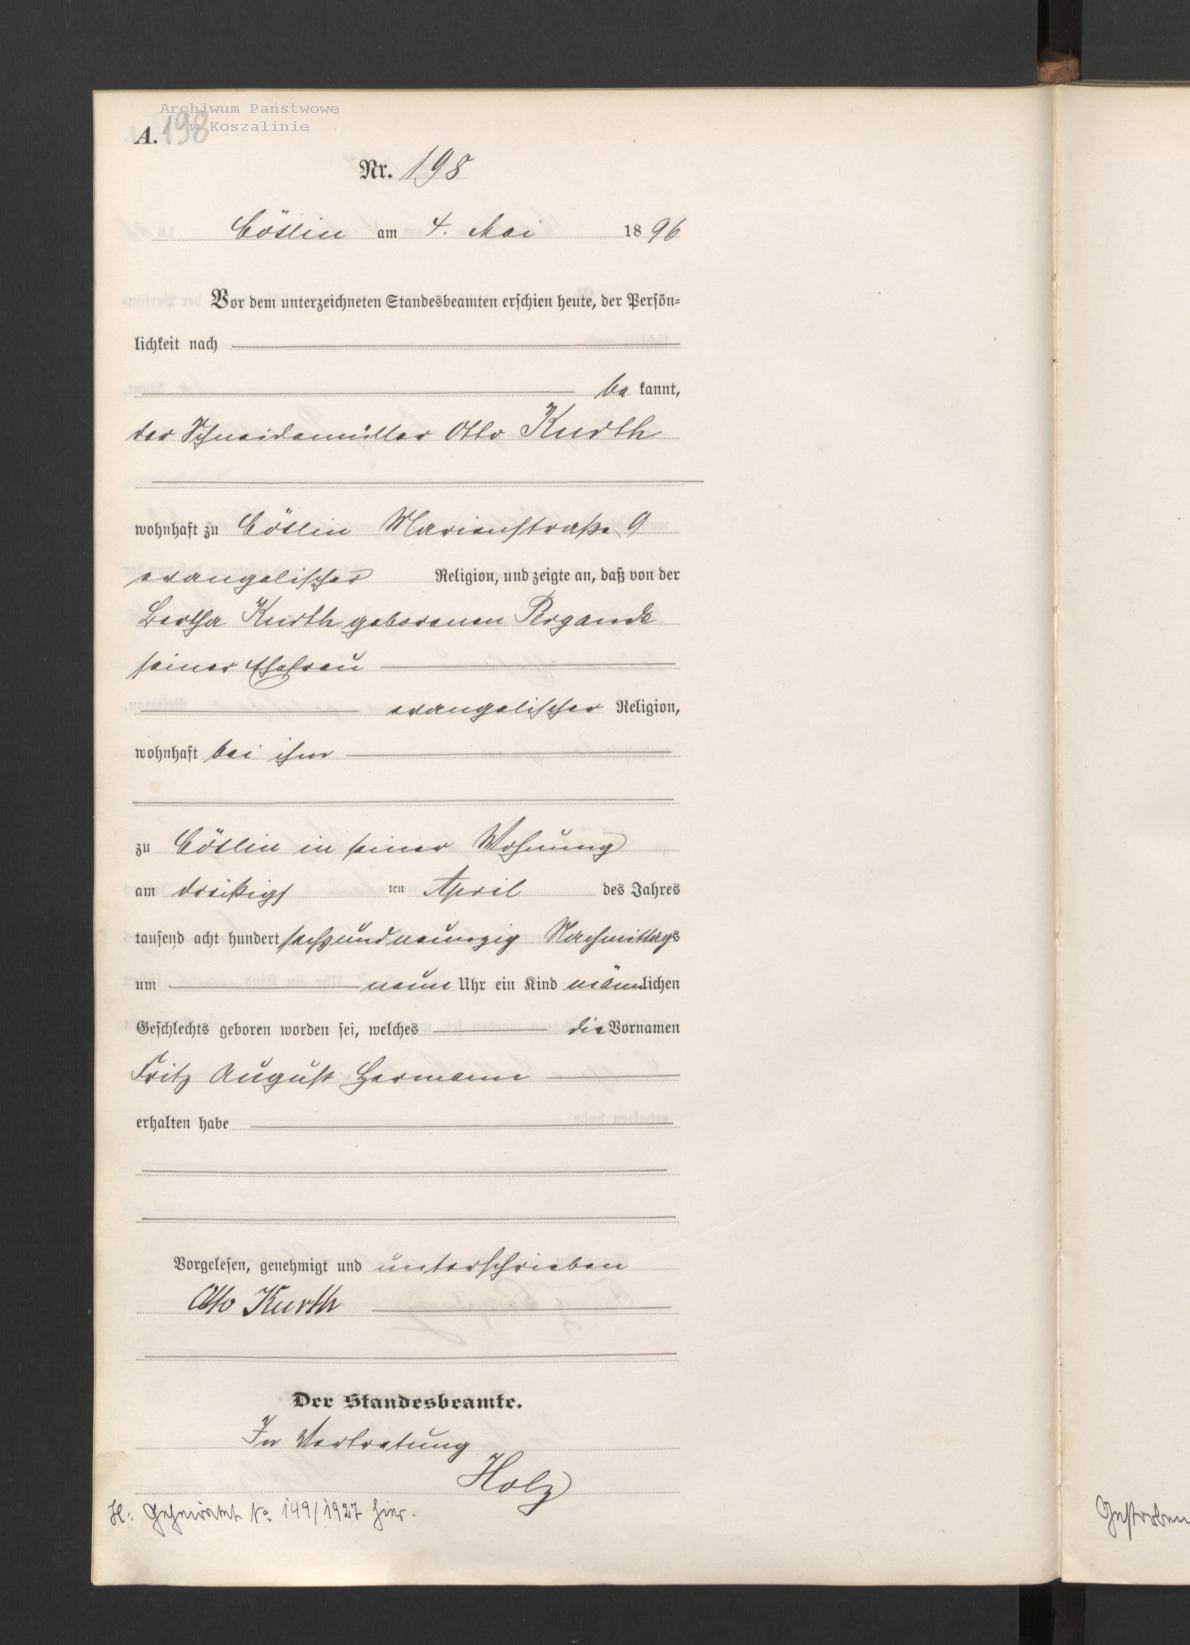 Archiwum Państwowe
w Koszalinie
A. 198
Nr. 198
Cöslin am 4. Mai 1896
Vor dem unterzeichneten Standesbeamten erschien heute, der Persön-
lichkeit nach
bekannt,
der Schneidemüller Otto Kurth
wohnhaft zu Cöslin Marienstraße 9
evangelischer Religion, und zeigte an, daß von der
Bertha Kurth geborenen Pergande
seiner Ehefrau
evangelischer Religion,
wohnhaft bei ihm
zu Cöslin in seiner Wohnung
am dreißigsten April des Jahres
tausend acht hundert sechsundneunzig Nachmittags
um neun Uhr ein Kind männlichen
Geschlechts geboren worden sei, welches die Vornamen
Fritz August Hermann
erhalten habe
Vorgelesen, genehmigt und unterschrieben
Otto Kurth
Der Standesbeamte.
In Vertretung
Holz
H: Geheiratet No 149/1927 hier.
Gestorben